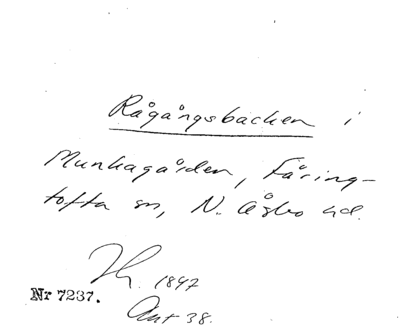 Rågångsbacken i
Munkagården, Färing-
tofta sn, N. Åsbo hd.
Th. 1847
Nr 7237.
Ant 38.